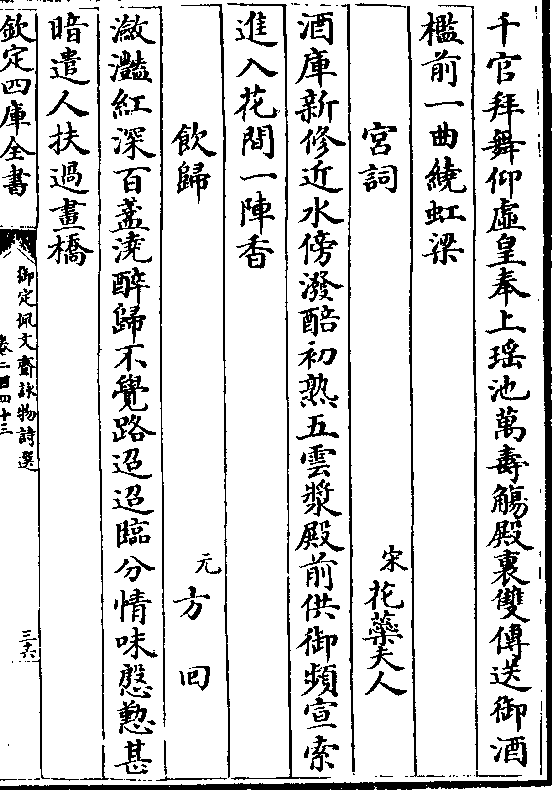 千官拜舞仰虛皇奉上瑶池萬壽觴殿裏雙傳送御酒
檻前一曲繞虹梁
宮詞
宋花藥夫人
酒庫新修近水傍潑醅初熟五雲漿殿前供御頻宣索
進入花間一陣香
飲歸
元方回
瀲灩紅深百盞澆醉歸不覺路迢迢臨分情味慇懃甚
暗遣人扶過畫橋
欽定四庫全書
御定佩文齋詠物詩選
卷二百四十三
三六